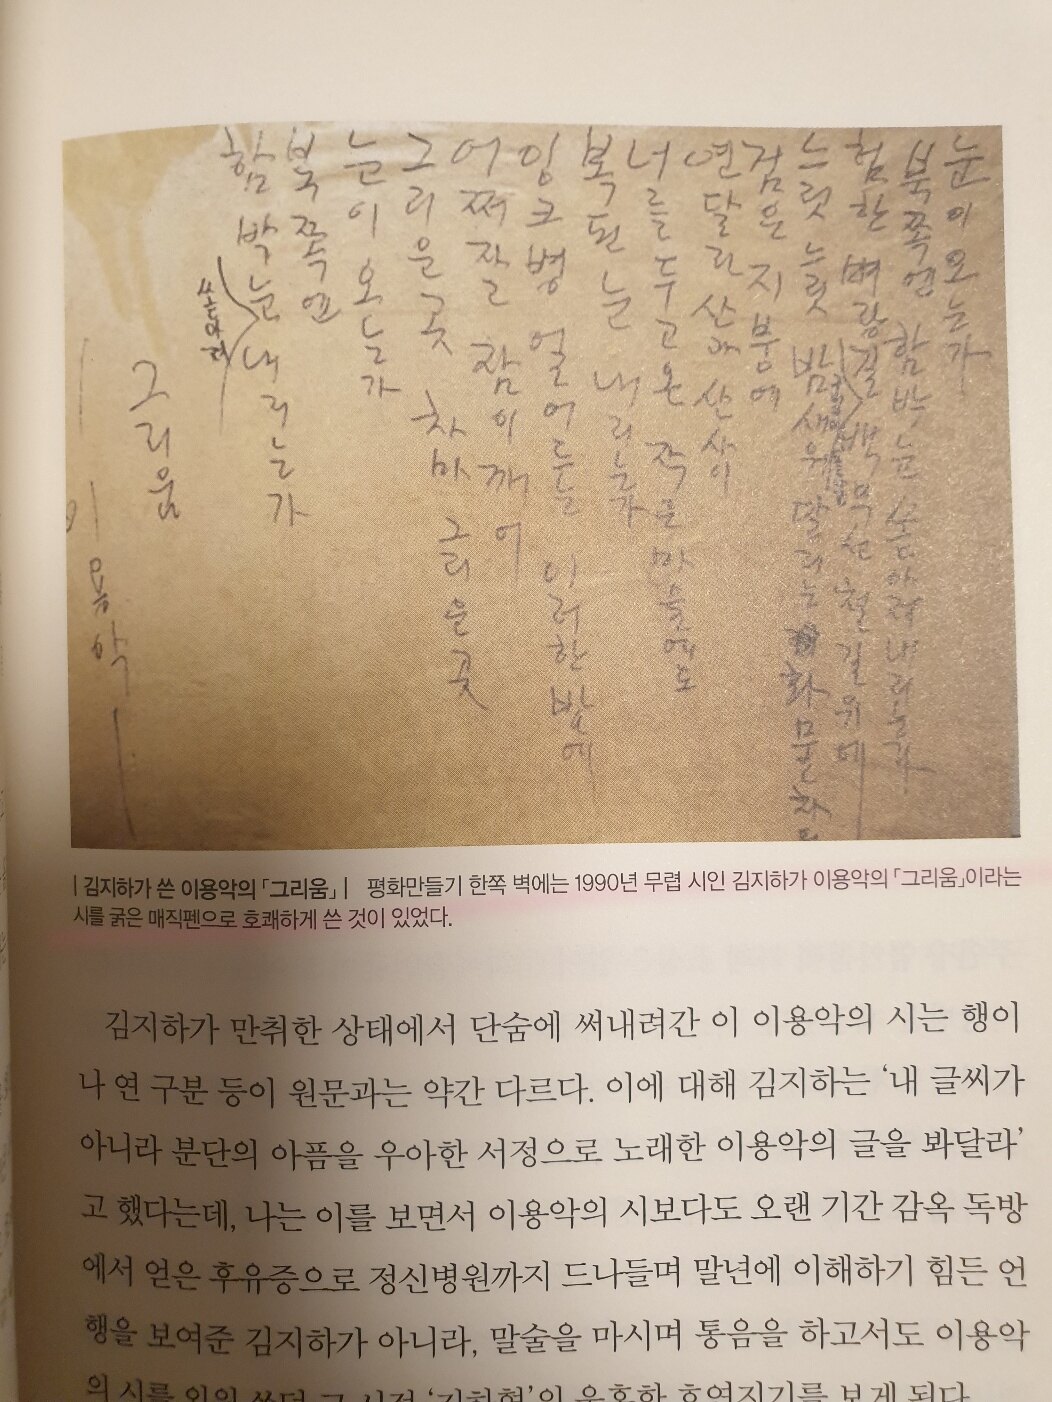 눈이 오는가
북쪽엔 함박눈 쏟아져내리는가
험한 벼랑길 백무선 철길 위에
느릿느릿 밤새워 달리는 화물차의
검은 지붕에
산과 산 사이
너를 두고 온 작은 마을에도
복된 눈 내리는가
잉크병 얼어드는 이러한 밤에
잠이 깨어
그리운 곳 차마 그리운 곳
눈이 오는가
북쪽엔
함박눈 쏟아져 내리는가
그리움
이용악
| 김지하가 쓴 이용악의 「그리움」 | 평화만들기 한쪽 벽에는 1990년 무렵 시인 김지하가 이용악의 「그리움」이라는
시를 굵은 매직펜으로 호쾌하게 쓴 것이 있었다.
김지하가 만취한 상태에서 단숨에 써내려간 이 이용악의 시는 행이
나 연 구분 등이 원문과는 약간 다르다. 이에 대해 김지하는 ‘내 글씨가
아니라 분단의 아픔을 우아한 서정으로 노래한 이용악의 글을 봐달라’
고 했다는데, 나는 이를 보면서 이용악의 시보다도 오랜 기간 감옥 독방
에서 얻은 후유증으로 정신병원까지 드나들며 말년에 이해하기 힘든 언
행을 보여준 김지하가 아니라, 말술을 마시며 통음을 하고서도 이용악
의 시를 외워 쓰던 그 시절 호연지기를 보게 된다.